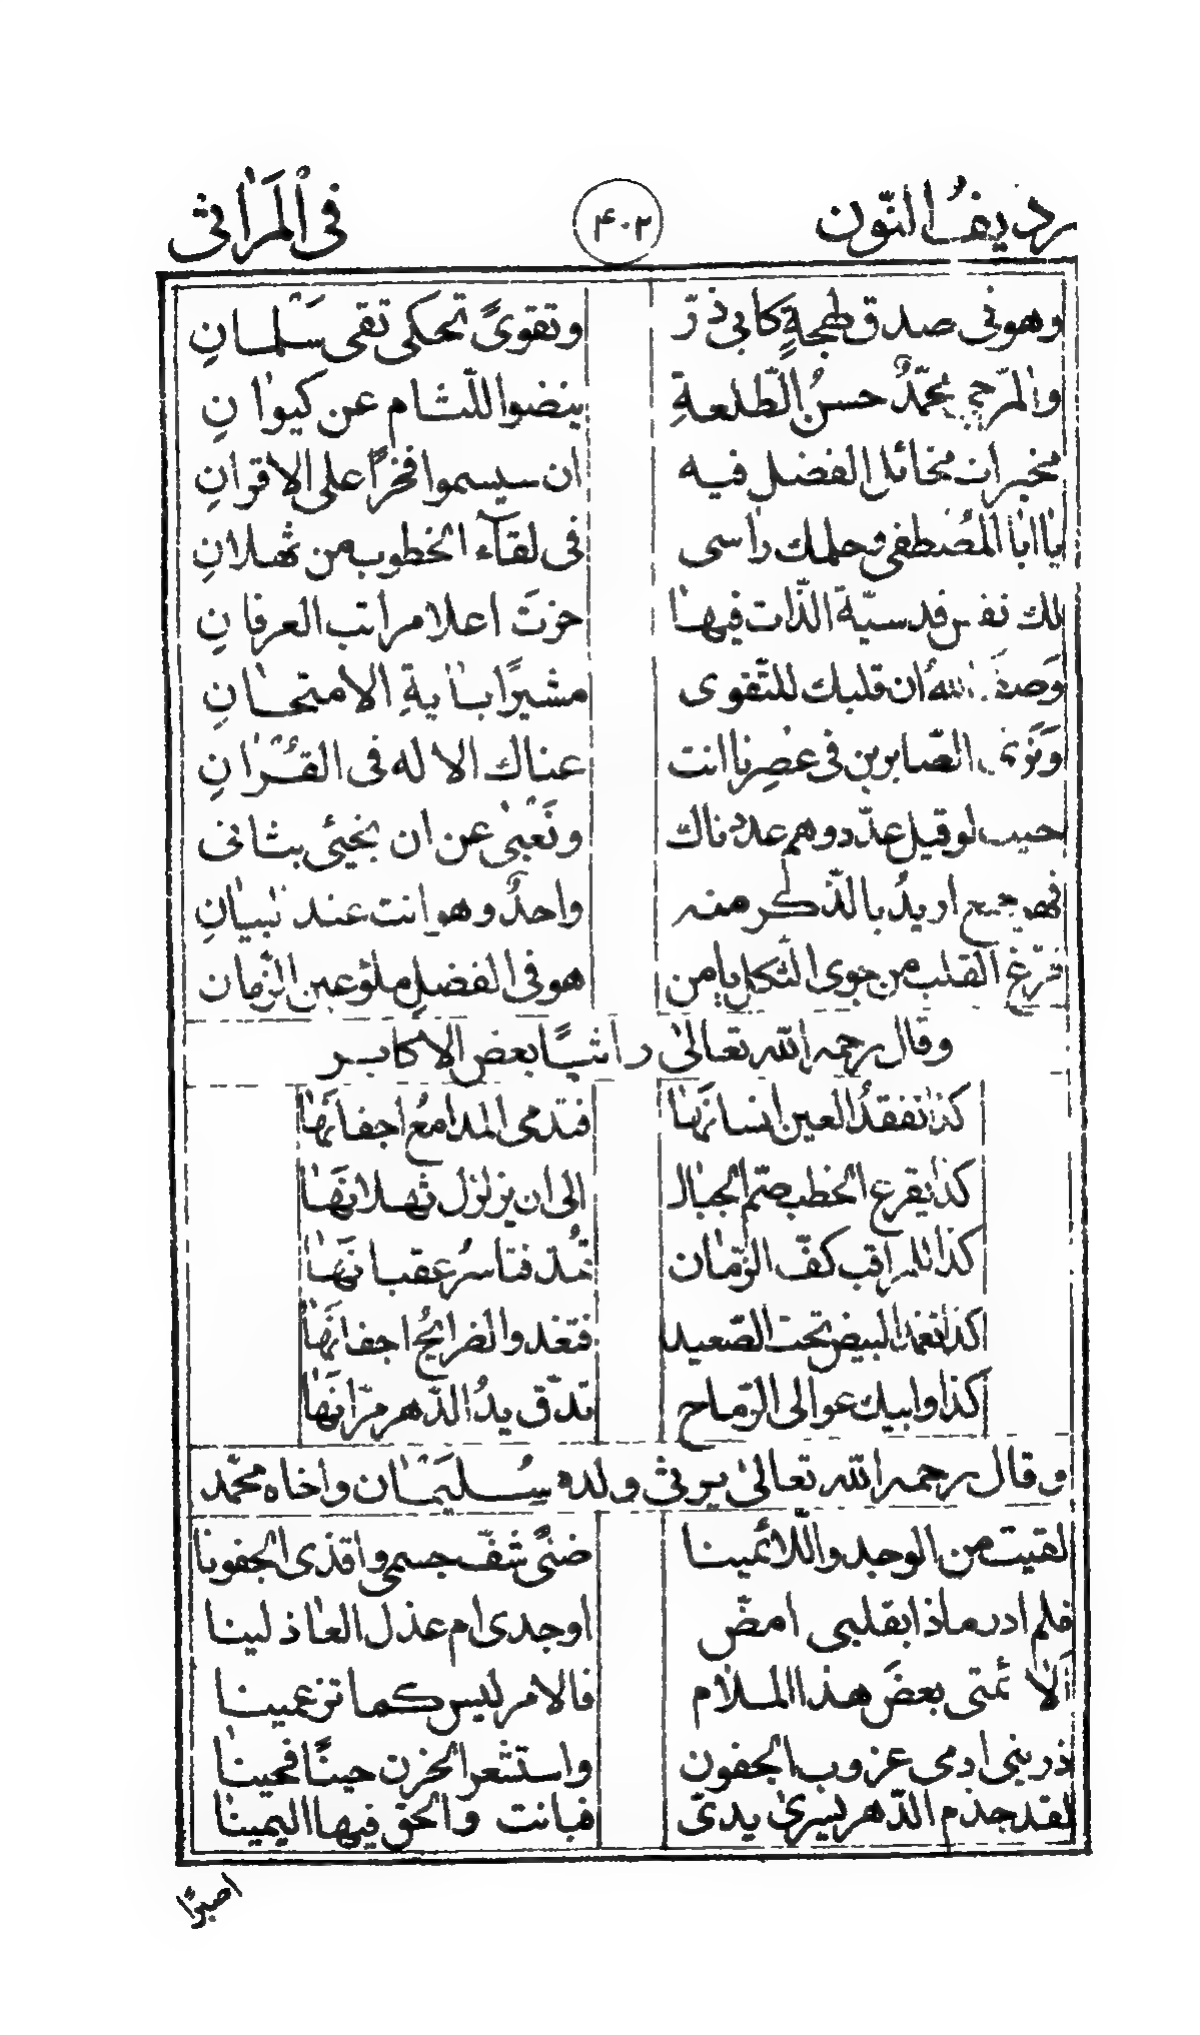 رديفُ النّون ۴۰۲ فى المَرٰاثى
وهو فى صدق لهجةٍ كابى ذرّ وتقوىً تحكى تقى سَلمـانِ
والمرجى محمّدٌ حسنُ الطّلعةِ ينضوا اللّثام عن كيوٰانِ
مخبرات مخائل الفضل فيه ان سيسموا فخرًا على الاقرانِ
يٰا ابٰا المُصْطفى وحلمك رٰاسى فى لقآء الخطوب من ثهلانِ
لك نفس قدسيّة الذّات فيهـٰا حزتَ اعلا مراتب العرفانِ
الله ان قلبك للتّقوى مشيرًا بـٰايةِ الامتحـانِ
الصّابرين فى عصرِنا انت عناك الاله فى القُـرْانِ
حيب لو قيل عدّدوهم عددناك ونَعْبىٰ عن ان نجيئ بثـانى
فهو جمع اريدُ بالذّكر منه واحدٌ وهو انت عند بَيـٰانِ
فرّغ القلب من جوى الثّكل يا من هو فى الفضل ملؤ عين الزّمان
وقال رحمه الله تعالىٰ راثيًـا بعض الاكابـر
كذا تفقدُ العين انسانَهٰا فتدمى المدامعُ اجفانَهٰا
كذا يقرع الخطب صّم الجبال الى ان يزلزل ثهلانَهٰا
كذا للمراقب كفّ الزّمان تُمـد فتاسرُ عقبـانَهٰا
كذا تغمد البيض تحت الصّعيد فتغدو الضرائحُ اجفانَهٰا
كذا وابيك عوالى الرّماح تدّق يدُ الدّهر مرّانَهٰا
وقال رحمه الله تعالىٰ يرثى ولده سُـليمَـان واخاه محمّد
لقيت من الوجد واللّائميـنـا ضنًى شفّ جسمى واقذى الجفونا
فلم ادر ماذا بقلبى امضّ اوجدى ام عذل العٰاذلينـا
اَلٰا ئمتى بعضَ هـذا المـلام فالامر ليس كمـا تزعميـنـا
ذرينى ادمى غروب الجفون واستشعر الحزن حينًا فحينـٰا
لقد جذم الدّهر يسرىٰ يدىّ فبانت والحق فيها اليمينٰا
اصبرًا